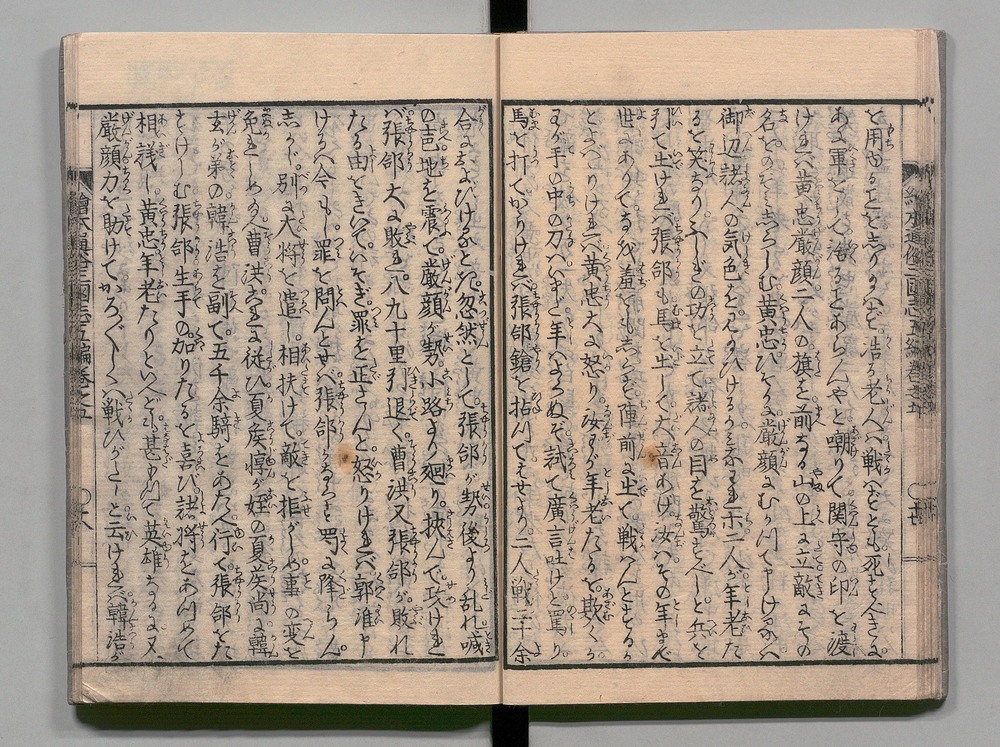 を用ゆることを志りたまハず。浩る老人ハ戦ハずとも死すべきに
ある軍をして人治るとあらんやと嘲りて関守の印を渡
けれバ黄忠厳顔二人の旗を前なる山の上に立敵にその
名をのぞミ志らしむ黄忠ひそかに厳顔にむかつて申けるハ
御辺諸人の気色を見たまひけるか我ら二人が年老た
るを笑なりふしぎの功を立て諸人の目を驚すべしと兵を
列て出けれバ張郃も馬を出して大音あげ汝ハその年まで
世にありてなを羞をも志らず。陣前に出て戦ハんとするか
とよバハりけれバ黄忠大に怒り。汝わが年老たるを。欺くか
わが手の中の刀ハいまだ年ハよらぬぞ試て廣言吐けと罵り。
馬を打てかかりけれバ張郃鎗を拈つてはせより。二人戦二十余
合におよびけるとき。忽然として。張郃が勢後より乱れ喊
の声。地を震て。厳顔が勢。小路より廻り。挟んで攻けれ
バ張郃大に敗れ。八九十里引退く曹洪又張郃が敗れ
たる由をきいて。いそぎ罪を正さんと怒りけれバ郭淮申
けるハ今もし罪を問んとせバ張郃かならず蜀に降らん。
志かじ。別に大将を遣し。相扶けて敵を拒がしめ重の変を
免れしめ玄曹洪これに従ひ夏侯惇が姪の夏侯尚に韓
玄が弟の韓浩を副て五千余騎をあたへ行て張郃をた
すけしむ張郃生手の加りたるを喜び諸将をあつめて
相議し黄忠年老たりといへども甚ゆゝしき英雄なるに又
厳顔力を助けてかろ〴〵しくハ戦ひがたしと云けれバ韓浩が
繪本通俗三國志五編巻之五
繪本通俗三國志五編巻之五
〇十八